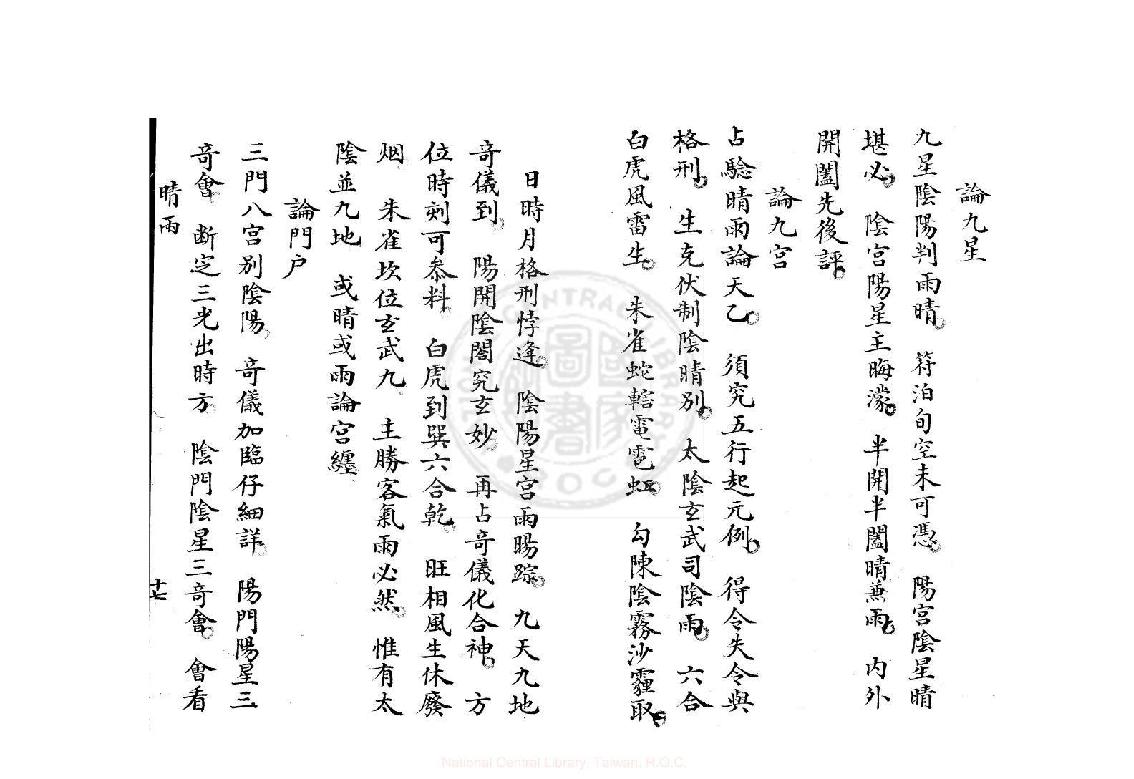 論九星
九星陰陽判雨晴 符泊旬空未可憑 陽宮陰星晴
堪必 陰宮陽星主晦濛 半開半闔晴兼雨 內外
開闔先後評
論九宮
占驗晴雨論天乙 須究五行起元例 得令失令與
格刑 生克伏制陰晴別 太陰玄武司陰雨 六合
白虎風雷生 朱雀蛇轄電雹虹 勾陳陰霧沙霾取
日時月格刑悖逢 陰陽星宮雨暘踪 九天九地
奇儀到 陽開陰闔究玄妙 再占奇儀化合神 方
位時刻可叅料 白虎到巽六合乾 旺相風生休廢
烟 朱雀坎位玄武九 主勝客氣雨必然 惟有太
陰並九地 或晴或雨論宮纏
論門户
三門八宮別陰陽 奇儀加臨仔細詳 陽門陽星三
奇會 斷定三光出時方 陰門陰星三奇會 會看
晴雨
十七
National Central Library, Taiwan, R.O.C.